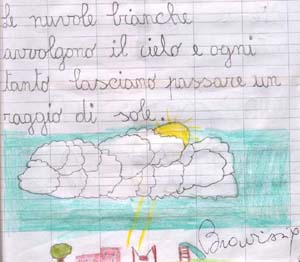 Le nuvole bianche
avvolgono il cielo e ogni
tanto lasciano passare un
raggio di sole.
Bravissp